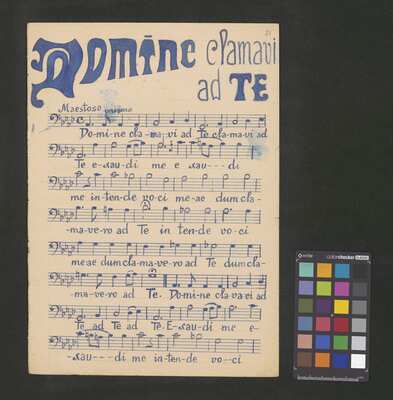 Domine clamavi
ad TE
Maestoso
Do-mi-ne cla-ma-vi ad Te cla-ma-vi ad
Te e-xau-di me e xau---di
me in-ten-de vo-ci me-ae dum cla-
-ma-ve-ro ad Te in ten-de vo-ci
me-ae dum cla-ma-ve-ro ad Te dum cla-
-ma-ve-ro ad Te. Do-mi-ne cla-va ei ad
Te ad Te ad Te. E-xau-di me e-
-xau---di me in-ten-de vo--ci
colorchecker